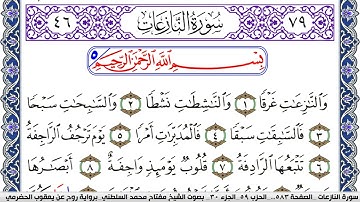 ٧٩ سُورَةُ النَّازِعَاتِ ٤٦
بِسْمِ اللَّهِ الرَّحْمَٰنِ الرَّحِيمِ
وَالنَّٰزِعَٰتِ غَرْقًا ١ وَالنَّٰشِطَٰتِ نَشْطًا ٢ وَالسَّٰبِحَٰتِ سَبْحًا
٣ فَالسَّٰبِقَٰتِ سَبْقًا ٤ فَالْمُدَبِّرَٰتِ أَمْرًا ٥ يَوْمَ تَرْجُفُ الرَّاجِفَةُ
٦ تَتْبَعُهَا الرَّادِفَةُ ٧ قُلُوبٌ يَوْمَئِذٍ وَاجِفَةٌ ٨ أَبْصَٰرُهَا
سورة النازعات الصفحة ٥٨٣ الحزب ٥٩ الجزء ٣٠ بصوت الشيخ مفتاح محمد السلطني برواية روح عن يعقوب الحضرمي